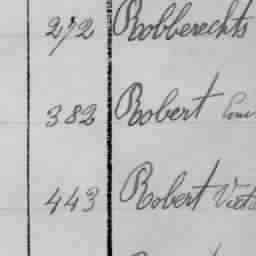 272 Robberechts
382 Robert
443 Robert